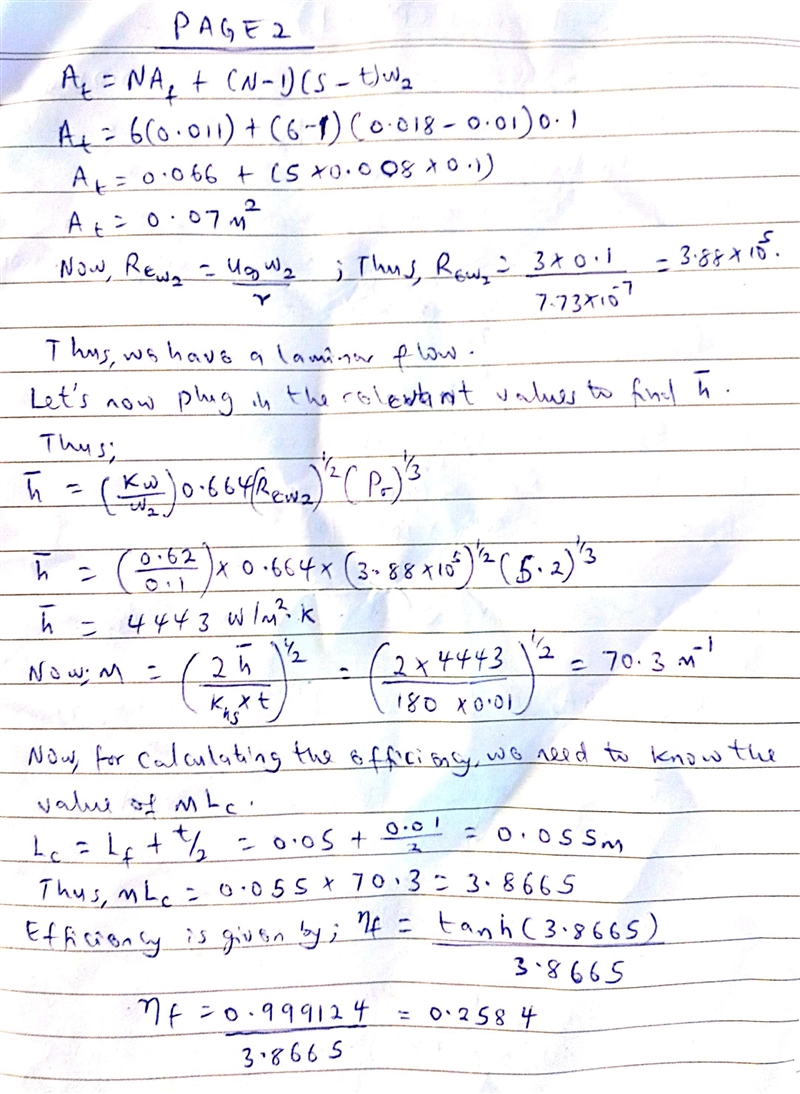 PAGE 2
A_t = NA_f + (N-1)(S - t)w_2
A_t = 6(0.011) + (6-1)(0.018 - 0.01)0.1
A_t = 0.066 + (5 x 0.008 x 0.1)
A_t = 0.07 m^2
Now, Re_w2 = u_∞ w_2 / r ; Thus, Re_w2 = 3 x 0.1 / 7.73x10^-7 = 3.88 x 10^5.
Thus, we have a laminar flow.
Let's now plug in the relevant values to find h̄.
Thus;
h̄ = (Kw/w_2) 0.664 (Re_w2)^1/2 (Pr)^1/3
h̄ = (0.62/0.1) x 0.664 x (3.88 x 10^5)^1/2 (5.2)^1/3
h̄ = 4443 W/m^2.K
Now; m = (2h̄ / K_hs x t)^1/2 = (2 x 4443 / 180 x 0.01)^1/2 = 70.3 m^-1
Now, for calculating the efficiency, we need to know the
value of mLc.
Lc = L_f + t/2 = 0.05 + 0.01/2 = 0.055m
Thus, mLc = 0.055 x 70.3 = 3.8665
Efficiency is given by; η_f = tanh(3.8665) / 3.8665
η_f = 0.999124 / 3.8665 = 0.2584